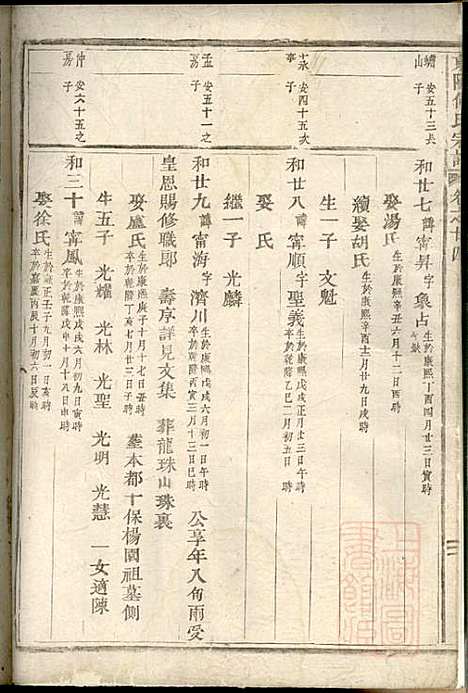 東陽何氏宗譜 卷之廿四
續安五十三次
山子
和廿七諱甯昇字象占生於康熙丁酉四月廿三日寅時
卒缺
娶湯氏生於康熙辛丑六月十二日酉時
續娶胡氏生於康熙辛酉十二月廿九日戌時
生一子 文魁
永安四十五次
亭子
和廿八諱甯順字聖義生於康熙戊戌正月廿三日辰時
卒於乾隆乙巳二月初十日午時
娶 氏
繼一子 光麟
孟安五十一之
房子
和廿九諱甯海字濟川生於康熙戊戌六月初一日午時
三月十三日巳時
公享年八旬兩受
皇恩賜修職郎 壽享詳見文集 葬龍珠山珠裏
娶盧氏生於康熙庚子十月十七日丑時
卒於乾隆丁亥七月廿三日亥時
塟本都十保楊園祖墓側
生五子 光燿 光林 光聖 光明 光慧 一女適陳
仲安六十五之
房子
和三十諱甯鳳生於康熙戊戌六月初九日寅時
卒於乾隆戊申十月十八日申時
娶徐氏生於雍正壬子九月初一日亥時
卒於嘉慶丙辰十月初六日亥時